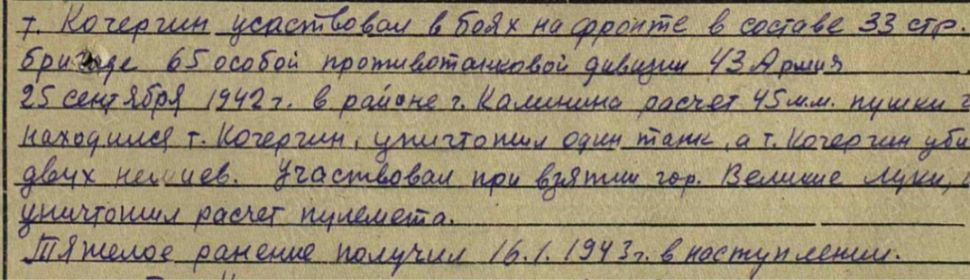 т. Кочергин усаствовал в боях на фронте в составе 33 стр.
бригаде 65 особой противотанковой дивизии 43 Армия
25 сентября 1942 г. в районе г. Калинина расчет 45 м.м. пушки
находился т. Кочергин, уничтожил один танк, а т. Кочергин уби
двух немцев. Участвовал при взятии гор. Великие Луки,
уничтожил расчет пулемета.
Тяжелое ранение получил 16.1.1943 г. в наступлении.